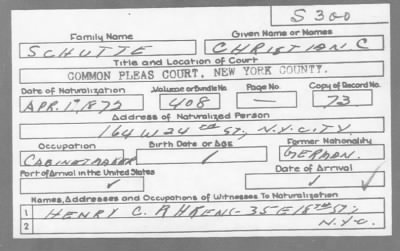 S 300
Family Name Given Name or Names
SCHUTTE CHRISTIAN C
Title and Location of Court
COMMON PLEAS COURT, NEW YORK COUNTY.
Date of Naturalization Volume or Bundle No. Page No. Copy of Record No.
APR. 1, 1872 408 — 73
Address of Naturalized Person
164 W 24 ST., N.Y. CITY
Occupation Birth Date or Age Former Nationality
CABINETMAKER ✓ GERMAN.
Port of Arrival in the United States Date of Arrival
✓ ✓
Names, Addresses and Occupations of Witnesses To Naturalization
1 HENRY C. AHRENS- 35 E 18TH ST;
2 N.Y.C.